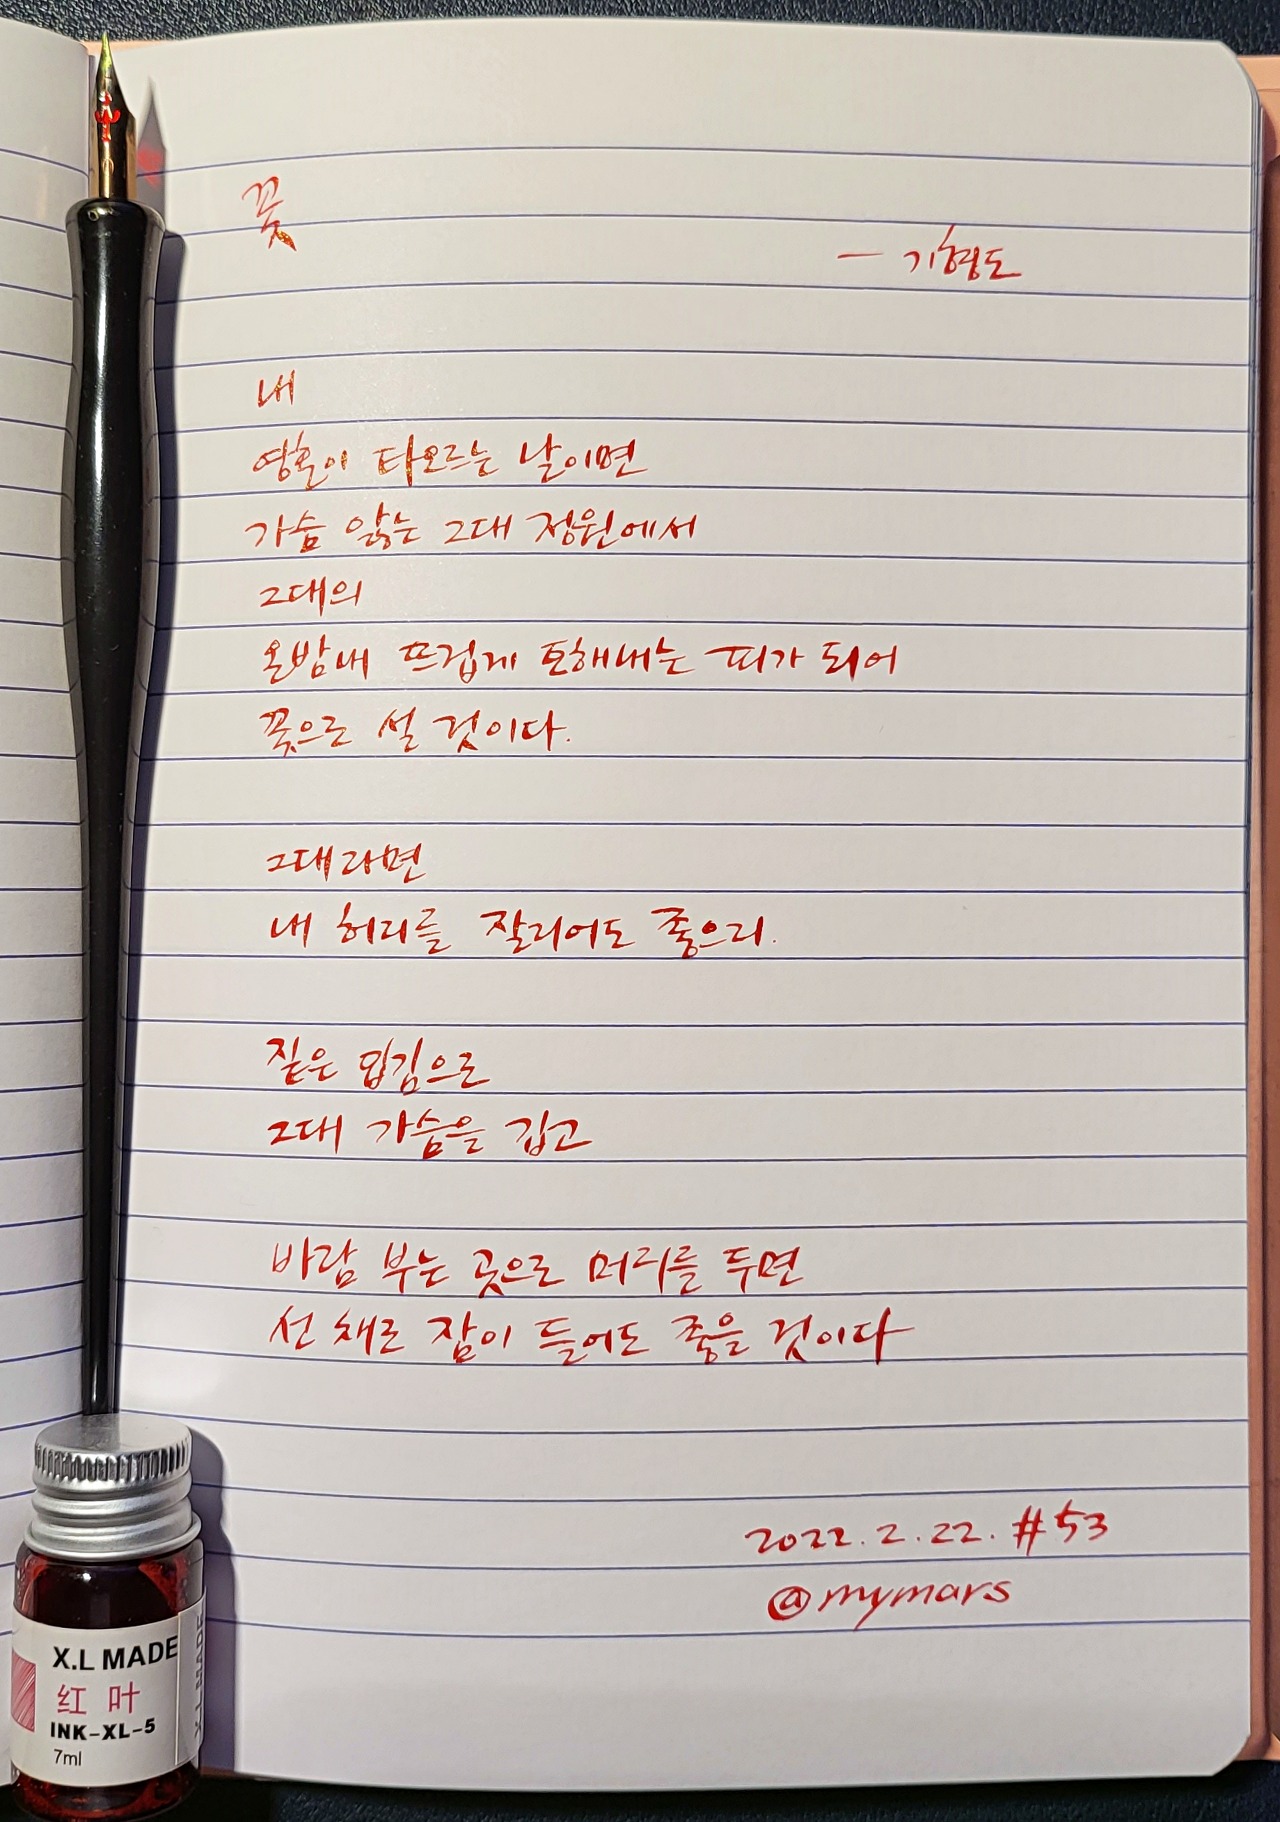 꽃
- 기형도
내
영혼이 타오르는 날이면
가슴 앓는 그대 정원에서
그대의
온밤내 뜨겁게 토해내는 피가 되어
꽃으로 설 것이다.
그대라면
내 허리를 잘리어도 좋으리.
짙은 입김으로
그대 가슴을 깁고
바람 부는 곳으로 머리를 두면
선 채로 잠이 들어도 좋을 것이다
2022.2.22. #53
@mymars
X.L MADE
红 叶
INK-XL-5
7ml
X.L MADE